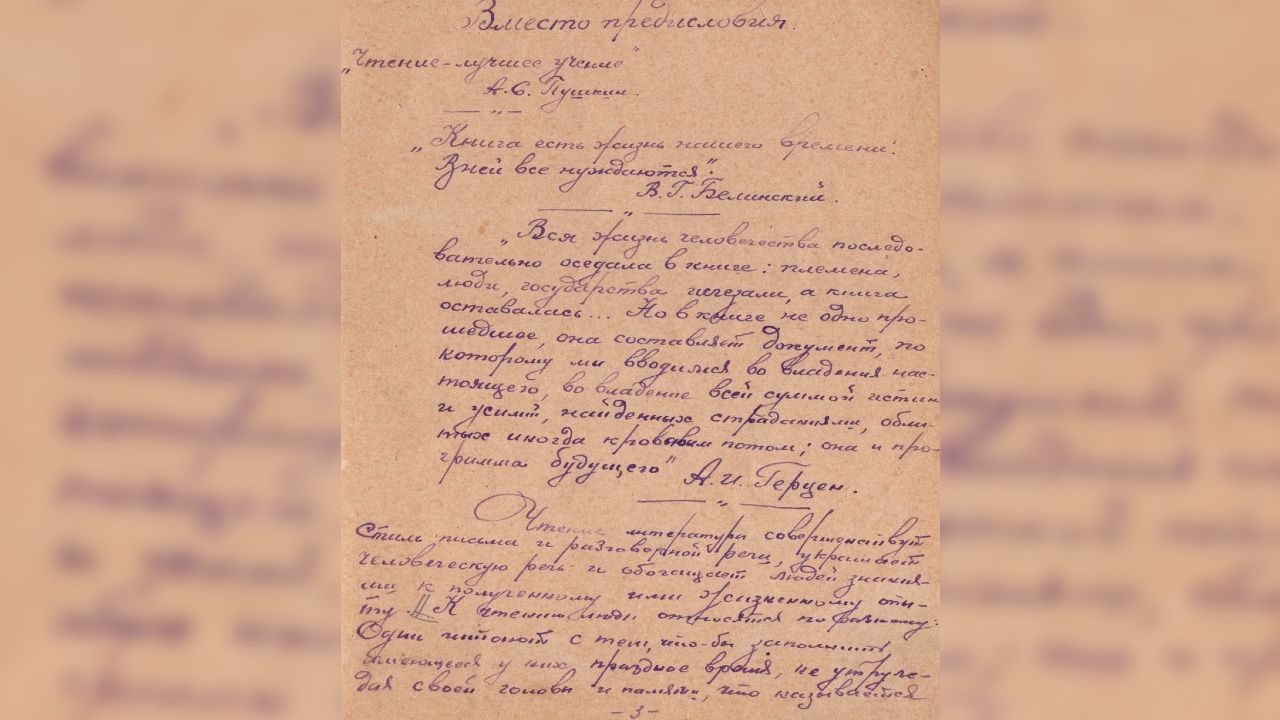 Вместо предисловия.
„Чтение-лучшее учение"
А.С. Пушкин.
„Книга есть жизнь нашего времени.
В ней все нуждаются".
В.Г. Белинский.
„Вся жизнь человечества последо-
вательно оседала в книге: племена,
люди, государства исчезали, а книга
оставалась... Но в книге не одно про-
шедшее, она составляет документ, по
которому мы вводимся во владения нас-
тоящего, во владение всей суммой истин
и усилий, найденных страданиями, обли-
тых иногда кровавым потом; она и про-
грамма будущего" А.И. Герцен.
Чтение литературы совершенствует
стиль письма и разговорной речи, украшает
человеческую речь и обогащает людей знания-
ми к полученному ими жизненному опы-
ту. К чтению люди относятся по разному:
Одни читают с тем, что-бы заполнить
имеющееся у них праздное время, не утруж-
дая своей головы и памяти, что называется
-3-